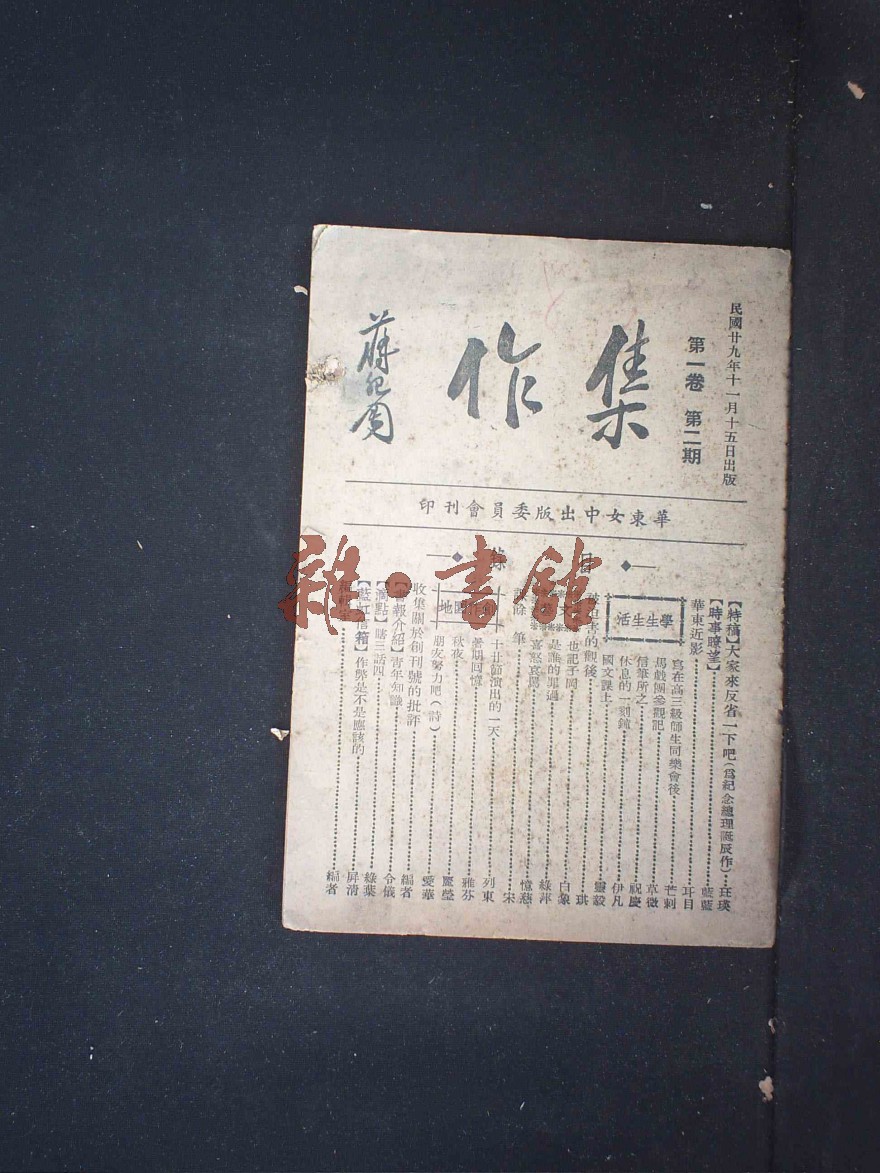 民國廿九年十一月十五日出版
第一卷 第二期
集作
蔣紀周
華東女中出版委員會刊印
目錄
【特稿】大家來反省一下吧(爲紀念總理誕辰作) 玨瑛
【時事瞭望】 藍藍
華東近影 耳目
學生生活
寫在高三級師生同樂會後 芒刺
馬戲團參觀記 草微
信筆所之 祝慶
休息的一刻鐘 伊凡
國文課上 靈毅
的觀後 琪
也記子岡 白象
是誰的罪過 綠萍
喜怒哀 憶慈
餘筆 宋
地
十廿節演出的一天 列東
暑期回憶 雅芬
秋夜 麗瑩
朋友努力吧(詩) 愛華
收集關於創刊號的批評 編者
【書報介紹】青年知識 令儀
【滴點】瞎三話四 綠葉
【藍虹信箱】作弊是不是應該的 屏清
編者
雜·書館